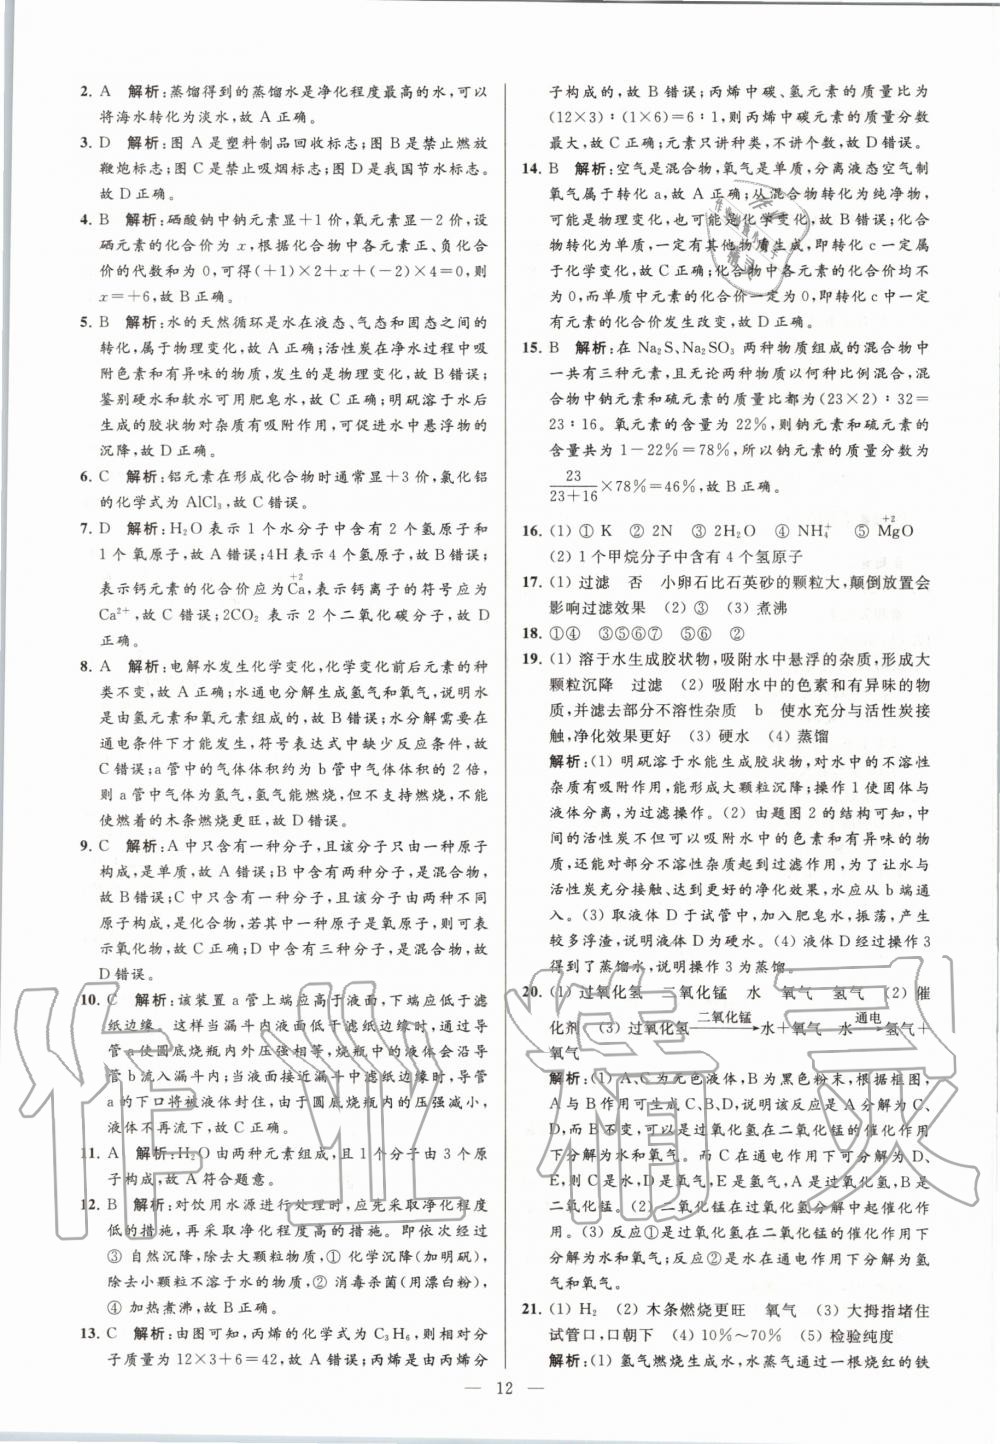 2. A 解析:蒸馏得到的蒸馏水是净化程度最高的水,可以
将海水转化为淡水,故 A 正确。
3. D 解析:图 A 是塑料制品回收标志;图 B 是禁止燃放
鞭炮标志;图 C 是禁止吸烟标志;图 D 是我国节水标志。
故 D 正确。
4. B 解析:硒酸钠中钠元素显+1 价,氧元素显-2 价,设
硒元素的化合价为 x,根据化合物中各元素正、负化合
价的代数和为 0,可得(+1)×2+x+(-2)×4=0,则
x=+6,故 B 正确。
5. B 解析:水的天然循环是水在液态、气态和固态之间的
转化,属于物理变化,故 A 正确;活性炭在净水过程中吸
附色素和有异味的物质,发生的是物理变化,故 B 错误;
鉴别硬水和软水可用肥皂水,故 C 正确;明矾溶于水后
生成的胶状物对杂质有吸附作用,可促进水中悬浮物的
沉降,故 D 正确。
6. C 解析:铝元素在形成化合物时通常显+3 价,氯化铝
的化学式为 AlCl₃,故 C 错误。
7. D 解析:H₂O 表示 1 个水分子中含有 2 个氢原子和
1 个氧原子,故 A 错误;4H 表示 4 个氢原子,故 B 错误;
+2
表示钙元素的化合价应为Ca,表示钙离子的符号应为
Ca²⁺,故 C 错误;2CO₂ 表示 2 个二氧化碳分子,故 D
正确。
8. A 解析:电解水发生化学变化,化学变化前后元素的种
类不变,故 A 正确;水通电分解生成氢气和氧气,说明水
是由氢元素和氧元素组成的,故 B 错误;水分解需要在
通电条件下才能发生,符号表达式中缺少反应条件,故
C 错误;a 管中的气体体积约为 b 管中气体体积的 2 倍,
则 a 管中气体为氢气,氢气能燃烧,但不支持燃烧,不能
使燃着的木条燃烧更旺,故 D 错误。
9. C 解析:A 中只含有一种分子,且该分子只由一种原子
构成,是单质,故 A 错误;B 中含有两种分子,是混合物,
故 B 错误;C 中只含有一种分子,且该分子由两种不同
原子构成,是化合物,若其中一种原子是氧原子,则可表
示氧化物,故 C 正确;D 中含有三种分子,是混合物,故
D 错误。
10. C 解析:该装置 a 管上端应高于液面,下端应低于滤
纸边缘。这样当漏斗内液面低于滤纸边缘时,通过导
管 a 使圆底烧瓶内外压强相等,烧瓶中的液体会沿导
管 b 流入漏斗内;当液面接近漏斗中滤纸边缘时,导管
a 的下口将被液体封住,由于圆底烧瓶内的压强减小,
液体不再流下,故 C 正确。
11. A 解析:H₂O 由两种元素组成,且 1 个分子由 3 个原
子构成,故 A 符合题意。
12. B 解析:对饮用水源进行处理时,应先采取净化程度
低的措施,再采取净化程度高的措施。即依次经过
③ 自然沉降,除去大颗粒物质,① 化学沉降(加明矾),
除去小颗粒不溶于水的物质,② 消毒杀菌(用漂白粉),
④ 加热煮沸,故 B 正确。
13. C 解析:由图可知,丙烯的化学式为 C₃H₆,则相对分
子质量为 12×3+6=42,故 A 错误;丙烯是由丙烯分
子构成的,故 B 错误;丙烯中碳、氢元素的质量比为
(12×3)∶(1×6)=6∶1,则丙烯中碳元素的质量分数
最大,故 C 正确;元素只讲种类,不讲个数,故 D 错误。
14. B 解析:空气是混合物,氧气是单质,分离液态空气制
氧气属于转化 a,故 A 正确;从混合物转化为纯净物,
可能是物理变化,也可能是化学变化,故 B 错误;化合
物转化为单质,一定有其他物质生成,即转化 c 一定属
于化学变化,故 C 正确;化合物中各元素的化合价均不
为 0,而单质中元素的化合价一定为 0,即转化 c 中一定
有元素的化合价发生改变,故 D 正确。
15. B 解析:在 Na₂S、Na₂SO₃ 两种物质组成的混合物中
一共有三种元素,且无论两种物质以何种比例混合,混
合物中钠元素和硫元素的质量比都为(23×2)∶32=
23∶16。氧元素的含量为 22%,则钠元素和硫元素的
含量共为 1-22%=78%,所以钠元素的质量分数为
23/(23+16)×78%=46%,故 B 正确。
+2
16. (1) ① K ② 2N ③ 2H₂O ④ NH₄⁺ ⑤ MgO
(2) 1 个甲烷分子中含有 4 个氢原子
17. (1) 过滤 否 小卵石比石英砂的颗粒大,颠倒放置会
影响过滤效果 (2) ③ (3) 煮沸
18. ①④ ③⑤⑥⑦ ⑤⑥ ②
19. (1) 溶于水生成胶状物,吸附水中悬浮的杂质,形成大
颗粒沉降 过滤 (2) 吸附水中的色素和有异味的物
质,并滤去部分不溶性杂质 b 使水充分与活性炭接
触,净化效果更好 (3) 硬水 (4) 蒸馏
解析:(1) 明矾溶于水能生成胶状物,对水中的不溶性
杂质有吸附作用,能形成大颗粒沉降;操作 1 使固体与
液体分离,为过滤操作。(2) 由题图 2 的结构可知,中
间的活性炭不但可以吸附水中的色素和有异味的物
质,还能对部分不溶性杂质起到过滤作用,为了让水与
活性炭充分接触、达到更好的净化效果,水应从 b 端通
入。(3) 取液体 D 于试管中,加入肥皂水,振荡,产生
较多浮渣,说明液体 D 为硬水。(4) 液体 D 经过操作 3
得到了蒸馏水,说明操作 3 为蒸馏。
20. (1) 过氧化氢 二氧化锰 水 氧气 氢气 (2) 催
化剂 (3) 过氧化氢 二氧化锰→ 水+氧气 水 通电→ 氢气+
氧气
解析:(1) A、C 为无色液体,B 为黑色粉末,根据框图,
A 与 B 作用可生成 C、B、D,说明该反应是 A 分解为 C、
D,而 B 不变,可以是过氧化氢在二氧化锰的催化作用
下分解为水和氧气。而 C 在通电作用下可分解为 D、
E,则 C 是水,D 是氧气,E 是氢气,A 是过氧化氢,B 是
二氧化锰。(2) 二氧化锰在过氧化氢分解中起催化作
用。(3) 反应①是过氧化氢在二氧化锰的催化作用下
分解为水和氧气;反应②是水在通电作用下分解为氢
气和氧气。
21. (1) H₂ (2) 木条燃烧更旺 氧气 (3) 大拇指堵住
试管口,口朝下 (4) 10%～70% (5) 检验纯度
解析:(1) 氢气燃烧生成水,水蒸气通过一根烧红的铁
— 12 —
作业精灵